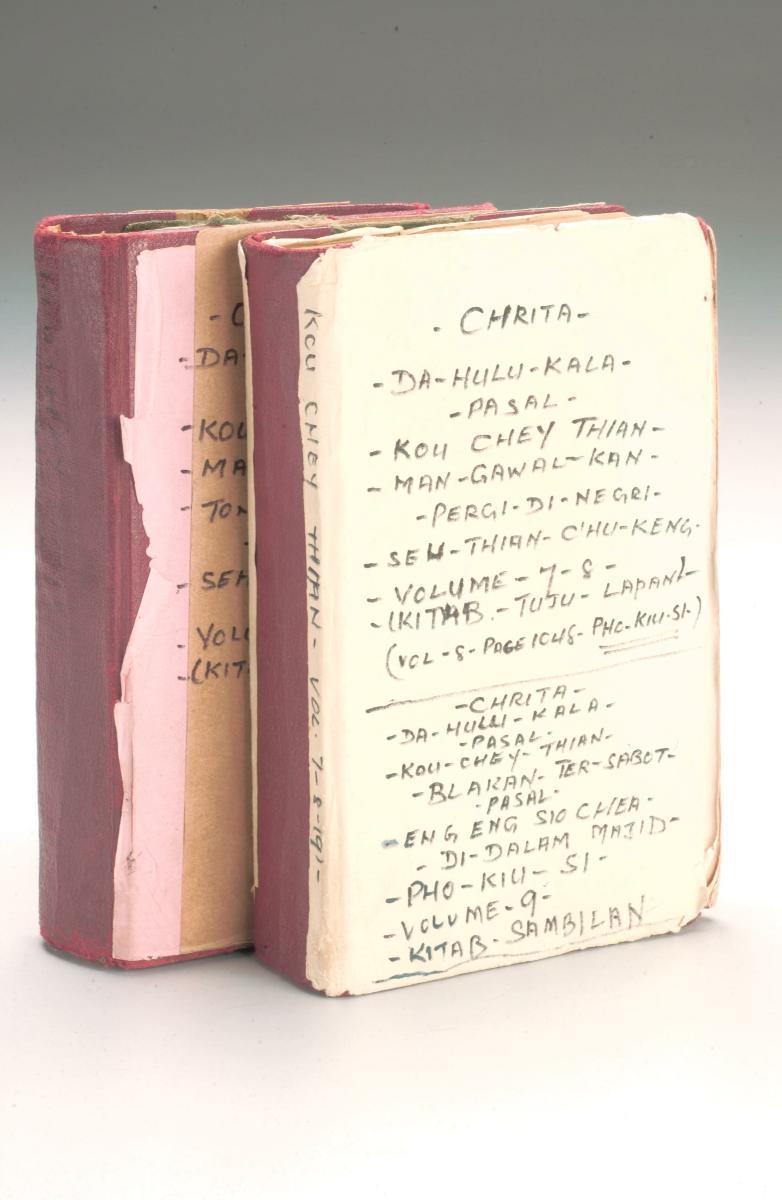 - C
- DA-
- KOU
- MA
- TON
- SEH
- VOLU
- (KIT
KOU CHEY THIAN - VOL. 7-8-(9)-
- CHRITA -
- DA-HULU-KALA -
- PASAL -
- KOU CHEY THIAN -
- MAN-GAWAL-KAN -
- PERGI-DI-NEGRI -
- SEH-THIAN-C'HU-KENG -
- VOLUME - 7-8 -
- (KITAB. - TUJU - LAPAN) -
(VOL-8-PAGE 1048- PHO-KIU-SI-)
- CHRITA -
- DA-HULU-KALA -
- PASAL -
- KOU-CHEY-THIAN -
- BLAKAN-TER-SABOT -
- PASAL -
- ENG ENG SIO CHEA -
- DI-DALAM MAJID -
- PHO-KIU-SI -
- VOLUME - 9 -
- KITAB - SAMBILAN